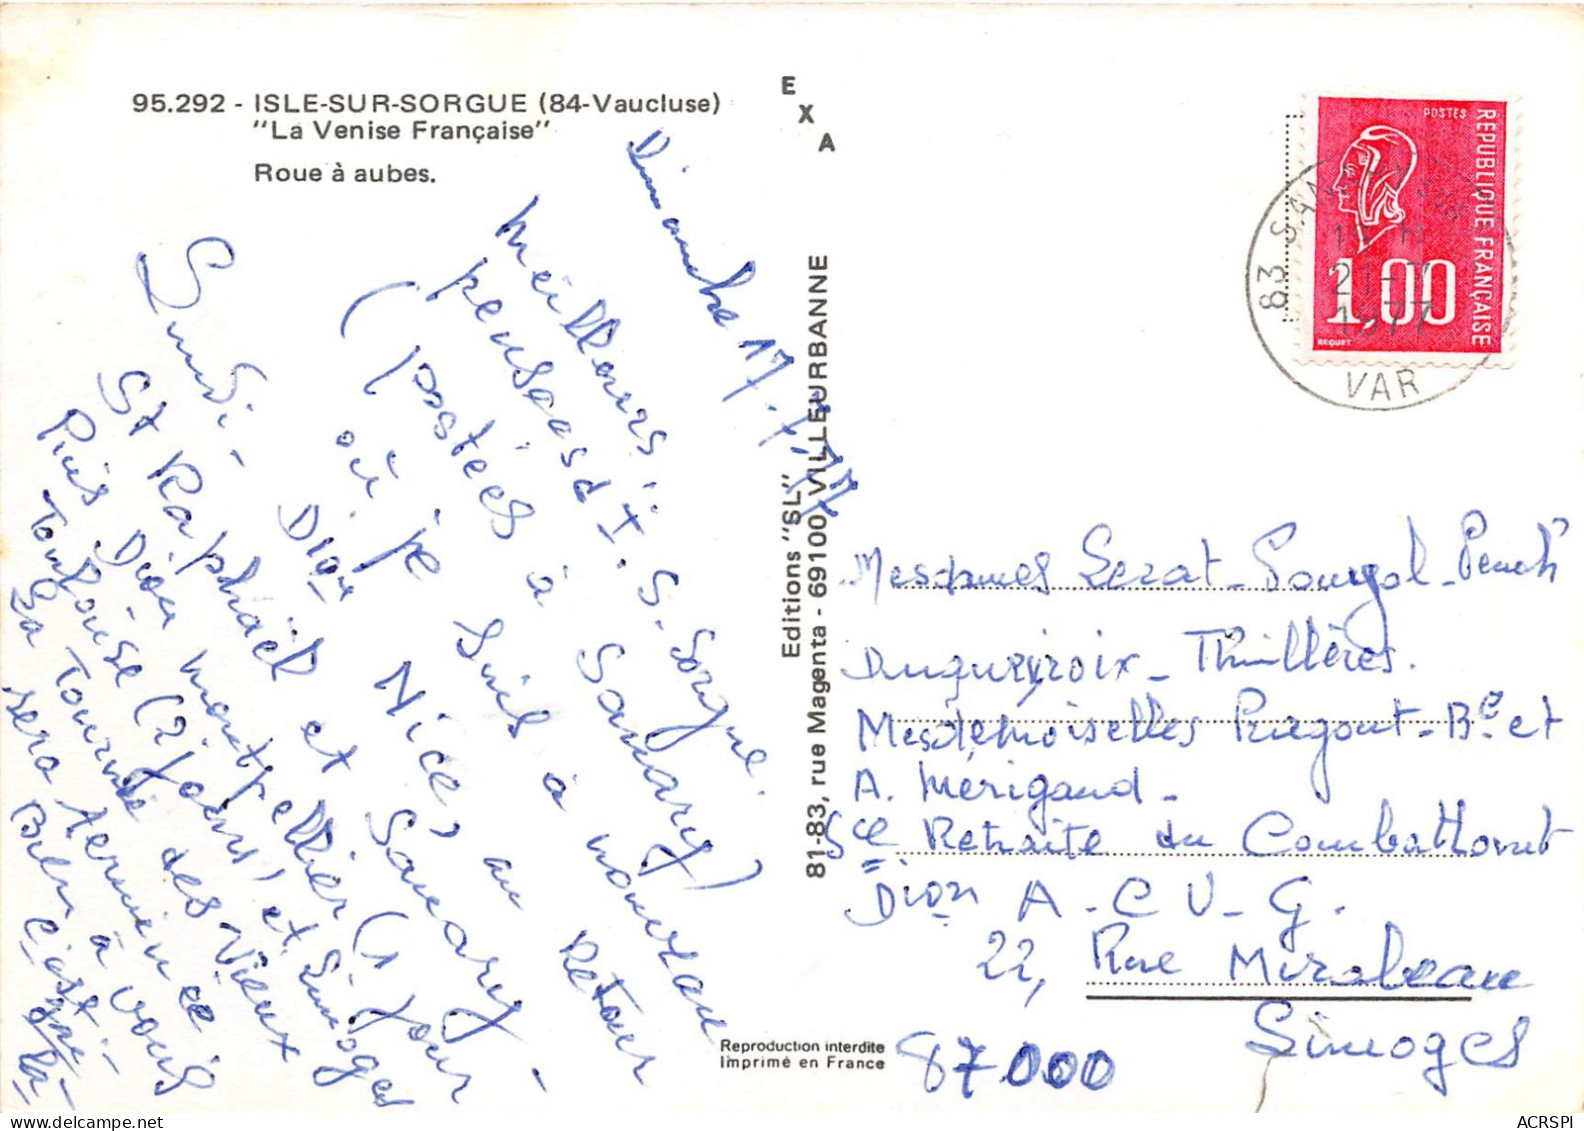 95.292 - ISLE-SUR-SORGUE (84-Vaucluse)
"La Venise Française"
Roue à aubes.
E
X
A
Dimanche 17.7.77
Meilleures
pensées d'I. S. Sorgue.
(postées à Sanary)
où je suis à nouveau
Lundi - Nice, au Retour
St Raphaël et Sanary -
Puis Montpellier (1 jour
Toulouse (2 jours) et Limoges
La Tournée des Vieux
sera terminée
Bien à vous
Editions "SL"
81-83, rue Magenta - 69100 VILLEURBANNE
Reproduction interdite
Imprimé en France
POSTES
REPUBLIQUE FRANÇAISE
1,00
BEQUET
83 SANARY
21-7
1977
VAR
Mesdames
Thillères.
Mesdemoiselles Et
A. Mérigaud -
Sce Retraite du Combattant
A.C.V.G.
22, Rue Mirabeau
Limoges
87000
ACRSPI